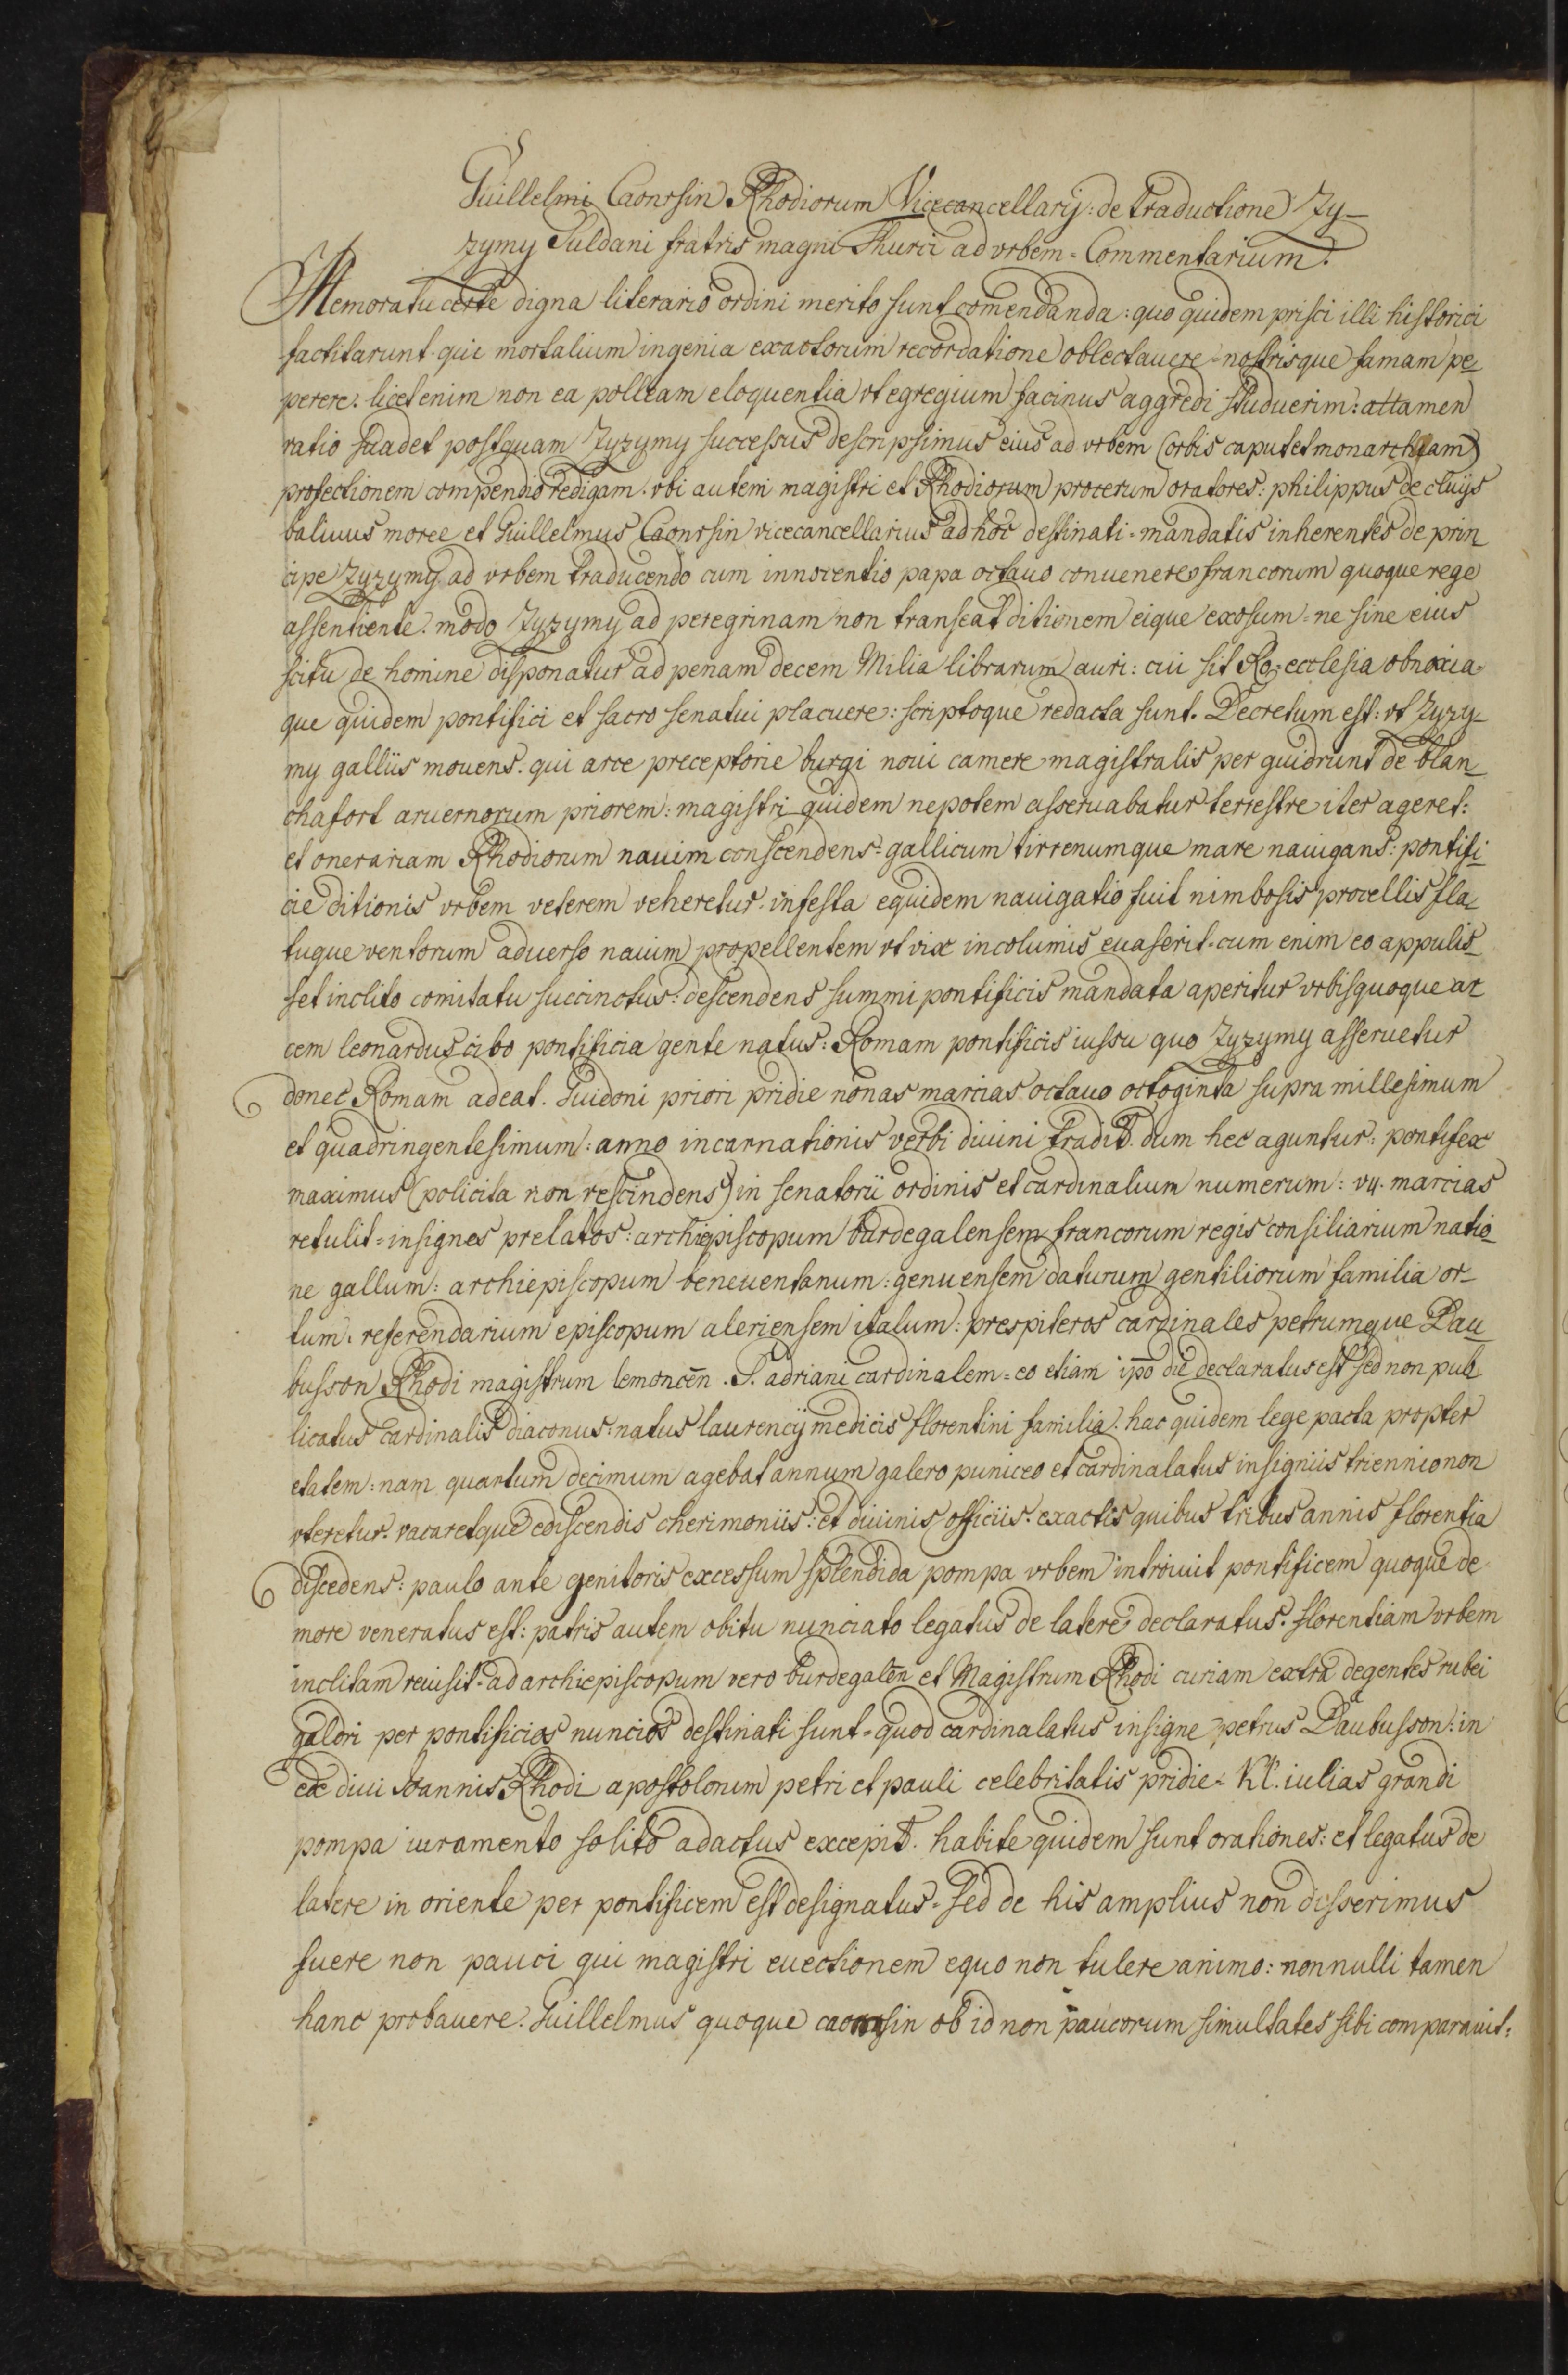 Guillelmi Caonrsin Rhodiorum Vicecancellarij: de traductione Zy-
zymy Suldani fratris magni Thurci ad vrbem = Commentarium.
Memoratu certe digna literario ordini merito sunt comendanda: quo quidem prisci illi historici
factitarunt. qui mortalium ingenia exactorum recordatione oblectauere = nostrisque famam pe-
perere. licet enim non ea polleam eloquentia vt egregium facinus aggredi studuerim: attamen
ratio suadet postquam Zyzymy successus descripsimus eius ad vrbem (orbis caput et monarchiam)
profectionem compendio redigam. vbi autem magistri et Rhodiorum procerum oratores: philippus de cluijs
baliuus moree et Guillelmus Caonrsin vicecancellarius ad hoc destinati = mandatis inherentes de prin-
cipe Zyzymy ad vrbem traducendo cum innocentio papa octauo conuenere francorum quoque rege
assentiente. modo Zyzymy ad peregrinam non transeat ditionem eique exosum = ne sine eius
scitu de homine disponatur ad penam decem Milia librarum auri: cui sit Ro: ecclesia obnoxia =
que quidem pontifici et sacro senatui placuere: scriptoque redacta sunt. Decretum est: vt Zyzy-
my galliis mouens. qui arce preceptorie burgi noui camere magistralis per guidrunt de blan-
chafort aruernorum priorem: magistri quidem nepotem asseruabatur terrestre iter ageret:
et onerariam Rhodiorum nauim conscendens = gallicum tirrenumque mare nauigans: pontifi-
cie ditionis vrbem veterem veheretur. infesta equidem nauigatio fuit nimbosis procellis fla-
tuque ventorum aduerso nauim propellentem vt vix incolumis euaserit. cum enim eo appulis-
set inclito comitatu succinctus: descendens summi pontificis mandata aperitur vrbisquoque ar
cem leonardus cibo pontificia gente natus: Romam pontificis iussu quo Zyzymy asseruetur
donec Romam adeat. Guidoni priori pridie nonas marcias octauo octoginta supra millesimum
et quadringentesimum: anno incarnationis verbi diuini tradit. dum hec aguntur: pontifex
maximus (policita non rescindens) in senatorii ordinis et cardinalium numerum: v4. marcias
retulit = insignes prelatos: archiepiscopum burdegalensem francorum regis consiliarium natio-
ne gallum: archiepiscopum beneuentanum: genuensem daturum gentiliorum familia or-
tum. referendarium episcopum aleriensem italum: prespiteros cardinales petrumque Dau-
busson Rhodi magistrum lemoncēn. S. adriani cardinalem = eo etiam ipō die declaratus est sed non pub-
licatus cardinalis diaconus: natus laurencij medicis florentini familia. hac quidem lege pacta propter
etatem: nam quartum decimum agebat annum galero puniceo et cardinalatus insigniis triennio non
vteretur. vacaretque ediscendis cherimoniis: et diuinis officiis. exactis quibus tribus annis florentia
discedens: paulo ante genitoris excessum splendida pompa vrbem introiuit pontificem quoque de
more veneratus est: patris autem obitu nunciato legatus de latere declaratus. florentiam vrbem
inclitam reuisit = ad archiepiscopum vero burdegalēn et Magistrum Rhodi curiam extra degentes rubei
galori per pontificios nuncios destinati sunt = quod cardinalatus insigne petrus Daubusson: in
ede diui Ioannis Rhodi apostolorum petri et pauli celebritatis pridie = Kl. iulias grandi
pompa iuramento solito adactus excepit. habite quidem sunt orationes: et legatus de
latere in oriente per pontificem est designatus = sed de his amplius non disserimus
fuere non pauci qui magistri euectionem equo non tulere animo: nonnulli tamen
hanc probauere. Guillelmus quoque caonrsin ob id non paucorum simultates sibi comparauit: